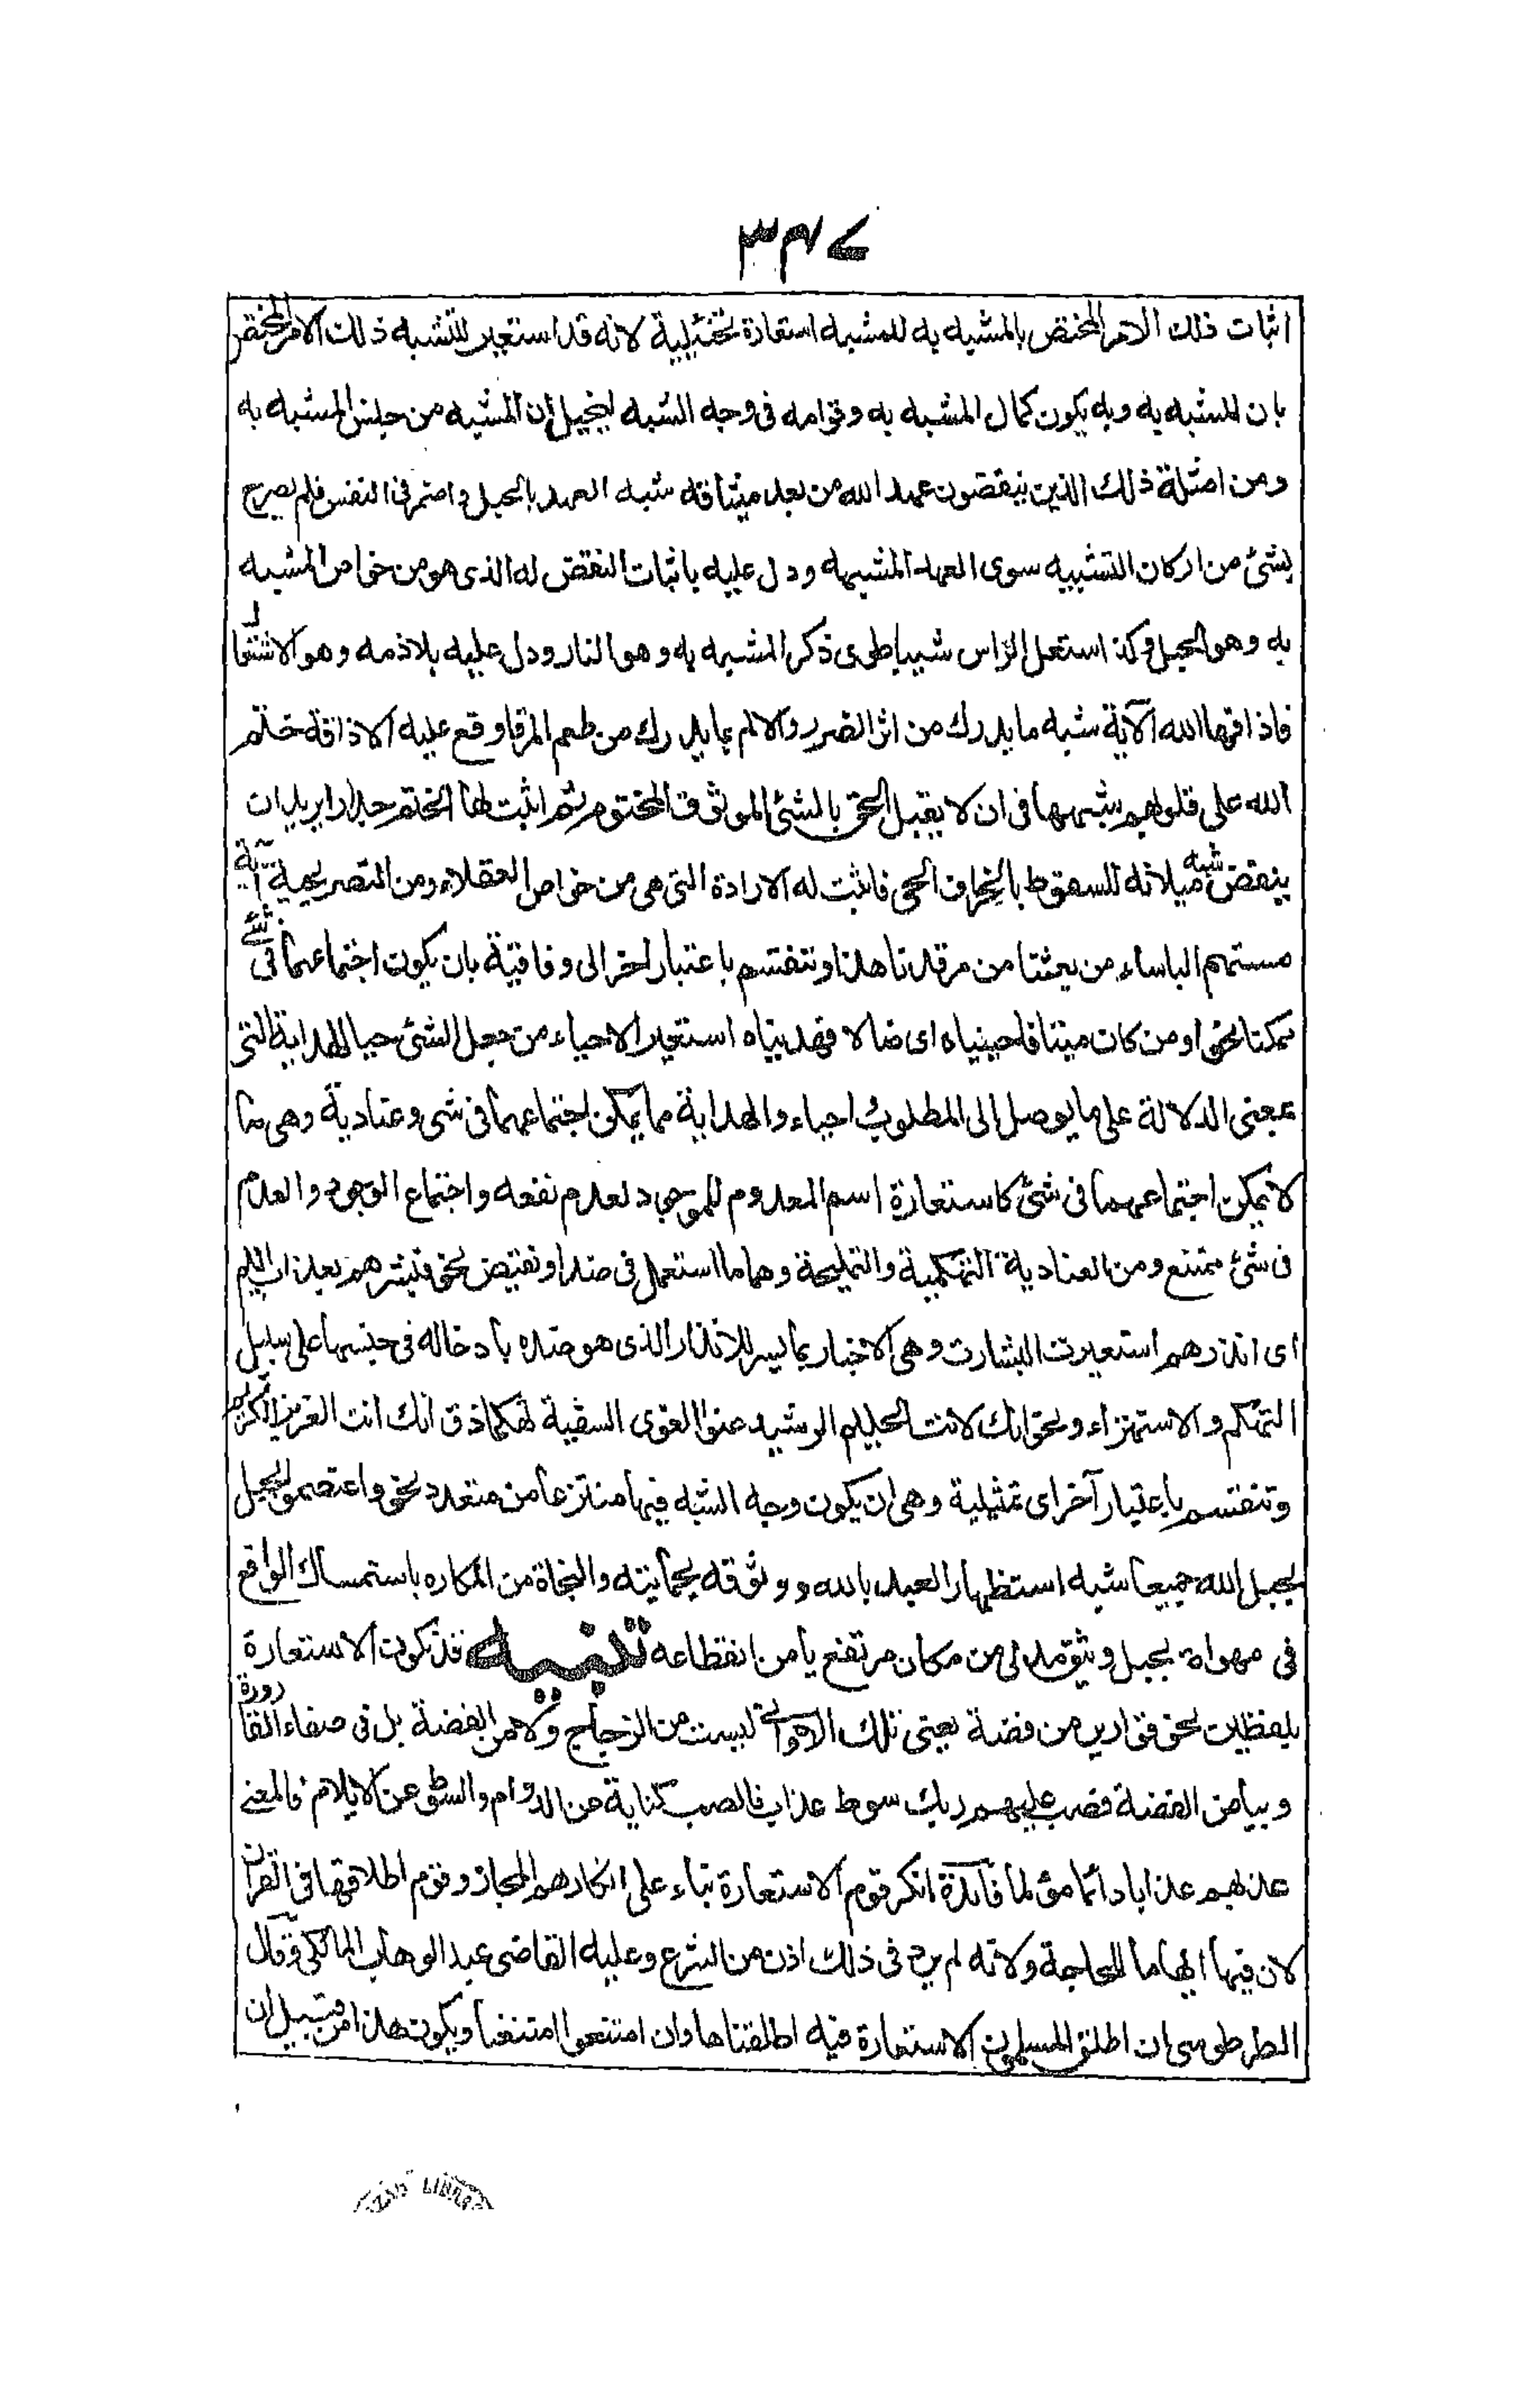 ٣٤٧
اثبات ذلك الامر المختص بالمشبه به للمشبه استعارة تخئيلية لانه قد استعير للتشبه ذلك الامر المختص
بان للمشبه به وبه يكون كمال المشبه به وقوامه فى وجه الشبه ليخيل ان المشبه من جنس المشبه به
ومن امثلة ذلك الذين ينقضون عهد الله من بعد ميثاقه شبه العهد بالحبل واضمر فى النفس فلم يصرح
بشئ من اركان التشبيه سوى العهد المشبه ودل عليه باثبات النقض له الذى هو من خواص المشبه
به وهو الحبل وكذا استعل الراس شيبا طوى ذكر المشبه به وهو النار ودل عليه بلازمه وهو الاشتعال
فاذاقها الله الآية شبه ما يدرك من اثر الضرر والالم بما يدرك من طعم المر فاوقع عليه الاذاقة ختم
الله على قلوبهم شبهها فى ان لا يقبل الحق بالشئ الموثوق المختوم ثم اثبت لها الختم جدارا يريد ان
ينقض شبه ميلانه للسقوط بانحراف الحى فاثبت له الارادة التى هى من خواص العقلاء ومن التصريحية آية
مستهم الباساء من بعثنا من مرقدنا هذا وتنقسم باعتبار اخر الى وفاقية بان يكون اجتماعهما فى شئ
ممكنا نحو او من كان ميتا فاحييناه اى ضالا فهديناه استعير الاحياء من جعل الشئ حيا للهداية التى
بمعنى الدلالة على ما يوصل الى المطلوب احياء والهداية مما يمكن اجتماعهما فى شى وعنادية وهى ما
لا يمكن اجتماعهما فى شئ كاستعارة اسم المعدوم للموجود لعدم نفعه واجتماع الوجود والعدم
فى شئ ممتنع ومن العنادية التهكمية والتمليحة وهما ما استعمل فى ضد او نقيض نحو فبشرهم بعذاب اليم
اى انذرهم استعيرت البشارت وهى الاخبار بما يسر للانذار الذى هو ضده بادخاله فى جنسها على سبيل
التهكم والاستهزاء ونحو انك لانت الحليم الرشيد عنوا الغوى السفية تهكما ذق انك انت العزيز الكريم
وتنقسم باعتبار آخر اى تمثيلية وهى ان يكون وجه الشبه فيها منتزعا من متعدد نحو واعتصموا بحبل
بحبل الله جميعا شبه استظهار العبد بالله ووثوقه بحمايته والنجاة من المكاره باستمساك الواقع
فى مهواة بحبل وثيق مدلى من مكان مرتفع يامن انقطاعه تنبيه قد تكون الاستعارة
بلفظين نحو قوارير من فضة يعنى تلك الاوانى ليست من الزجاج ولا من الفضة بل فى صفاء القارورة
وبياض الفضة فصب عليهم ربك سوط عذاب فالصب كناية عن الدوام والسوط عن الايلام فالمعنى
عذبهم عذابا دائما مؤلما فآئدة انكر قوم الاستعارة بناء على انكارهم المجاز وقوم اطلاقها فى القرآن
لان فيها ايهاما للحاجة ولانه لم يرد فى ذلك اذن من الشرع وعليه القاضى عبد الوهاب المالكى وقال
الطرطوسى ان اطلق المسلمون الاستعارة فيه اطلقناها وان امتنعوا امتنعنا ويكون هذا من قبيل ان